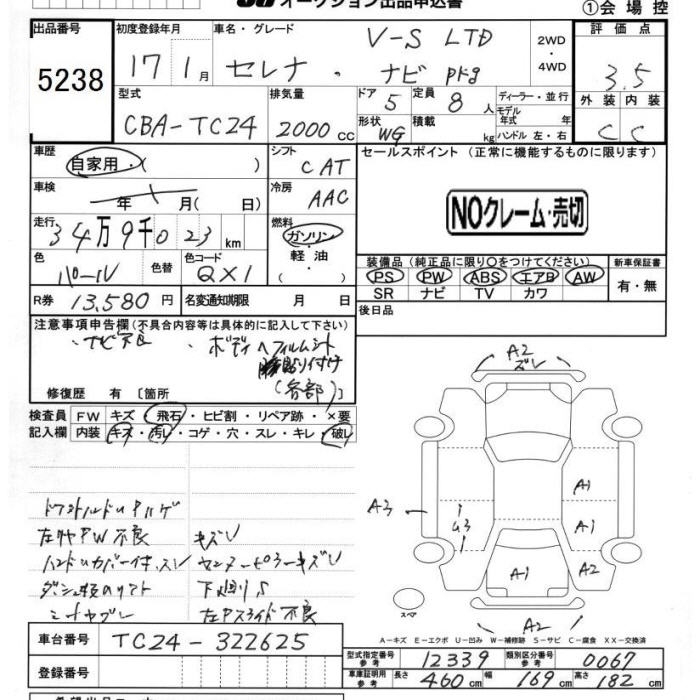 オークション出品申込書
①会場控
出品番号
5238
初度登録年月
17年1月
車名・グレード
V-S LTD
セレナ・ナビPkg
2WD・4WD
評価点
3.5
外装 内装
C C
型式
CBA-TC24
排気量
2000cc
ドア
5
定員
8人
形状
WG
積載
kg
ディーラー・並行
モデル年式 年
ハンドル 左・右
車歴
自家用・( )
シフト
CAT
セールスポイント(正常に機能するものに限ります)
車検
年 月(日)
冷房
AAC
NOクレーム・売切
走行
34万9千023km
燃料
ガソリン・軽油
装備品(純正品に限り○をつけてください)
PS PW ABS エアB AW
SR ナビ TV カワ
新車保証書
有・無
色
パール
色替
色コード
QX1
R券 13,580円
名変通知期限 月 日
後日品
注意事項申告欄(不具合内容等は具体的に記入して下さい)
・ナビ不良 ・ボディへフィルムシート
貼り付け
(各部)
修復歴 有 [箇所 ]
検査員記入欄
FW キズ・飛石・ヒビ割・リペア跡・×要
内装 キズ・汚レ・コゲ・穴・スレ・キレ・破レ
左外PW不良 キズV
下廻りS
左Pスライド不良
A2
ズレ
A3
U3
A1
A1
A1
A2
A2
スペア
A-キズ E-エクボ U-凹み W-補修跡 S-サビ C-腐食 XX-交換済
車台番号
TC24-322625
登録番号
型式指定番号 参考
12339
類別区分番号 参考
0067
車庫証明用 参考
長さ 460cm 幅 169cm 高さ 182cm